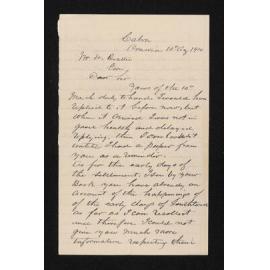 Mr W. Beattie
Esq
Dear Sir
Yours of the 10th
March duly to hand I would have
replied to it before now, but
when it arrived I was not in
good health and delayed
replying, then I see I couldn't
until I have a paper from
you as a reminder.
As for the early days of
the settlement, I see by your
Book you have already an
account of the happenings of
of the early days of Southland
as far as I can recollect
and therefore I could not
give you much more
information respecting them